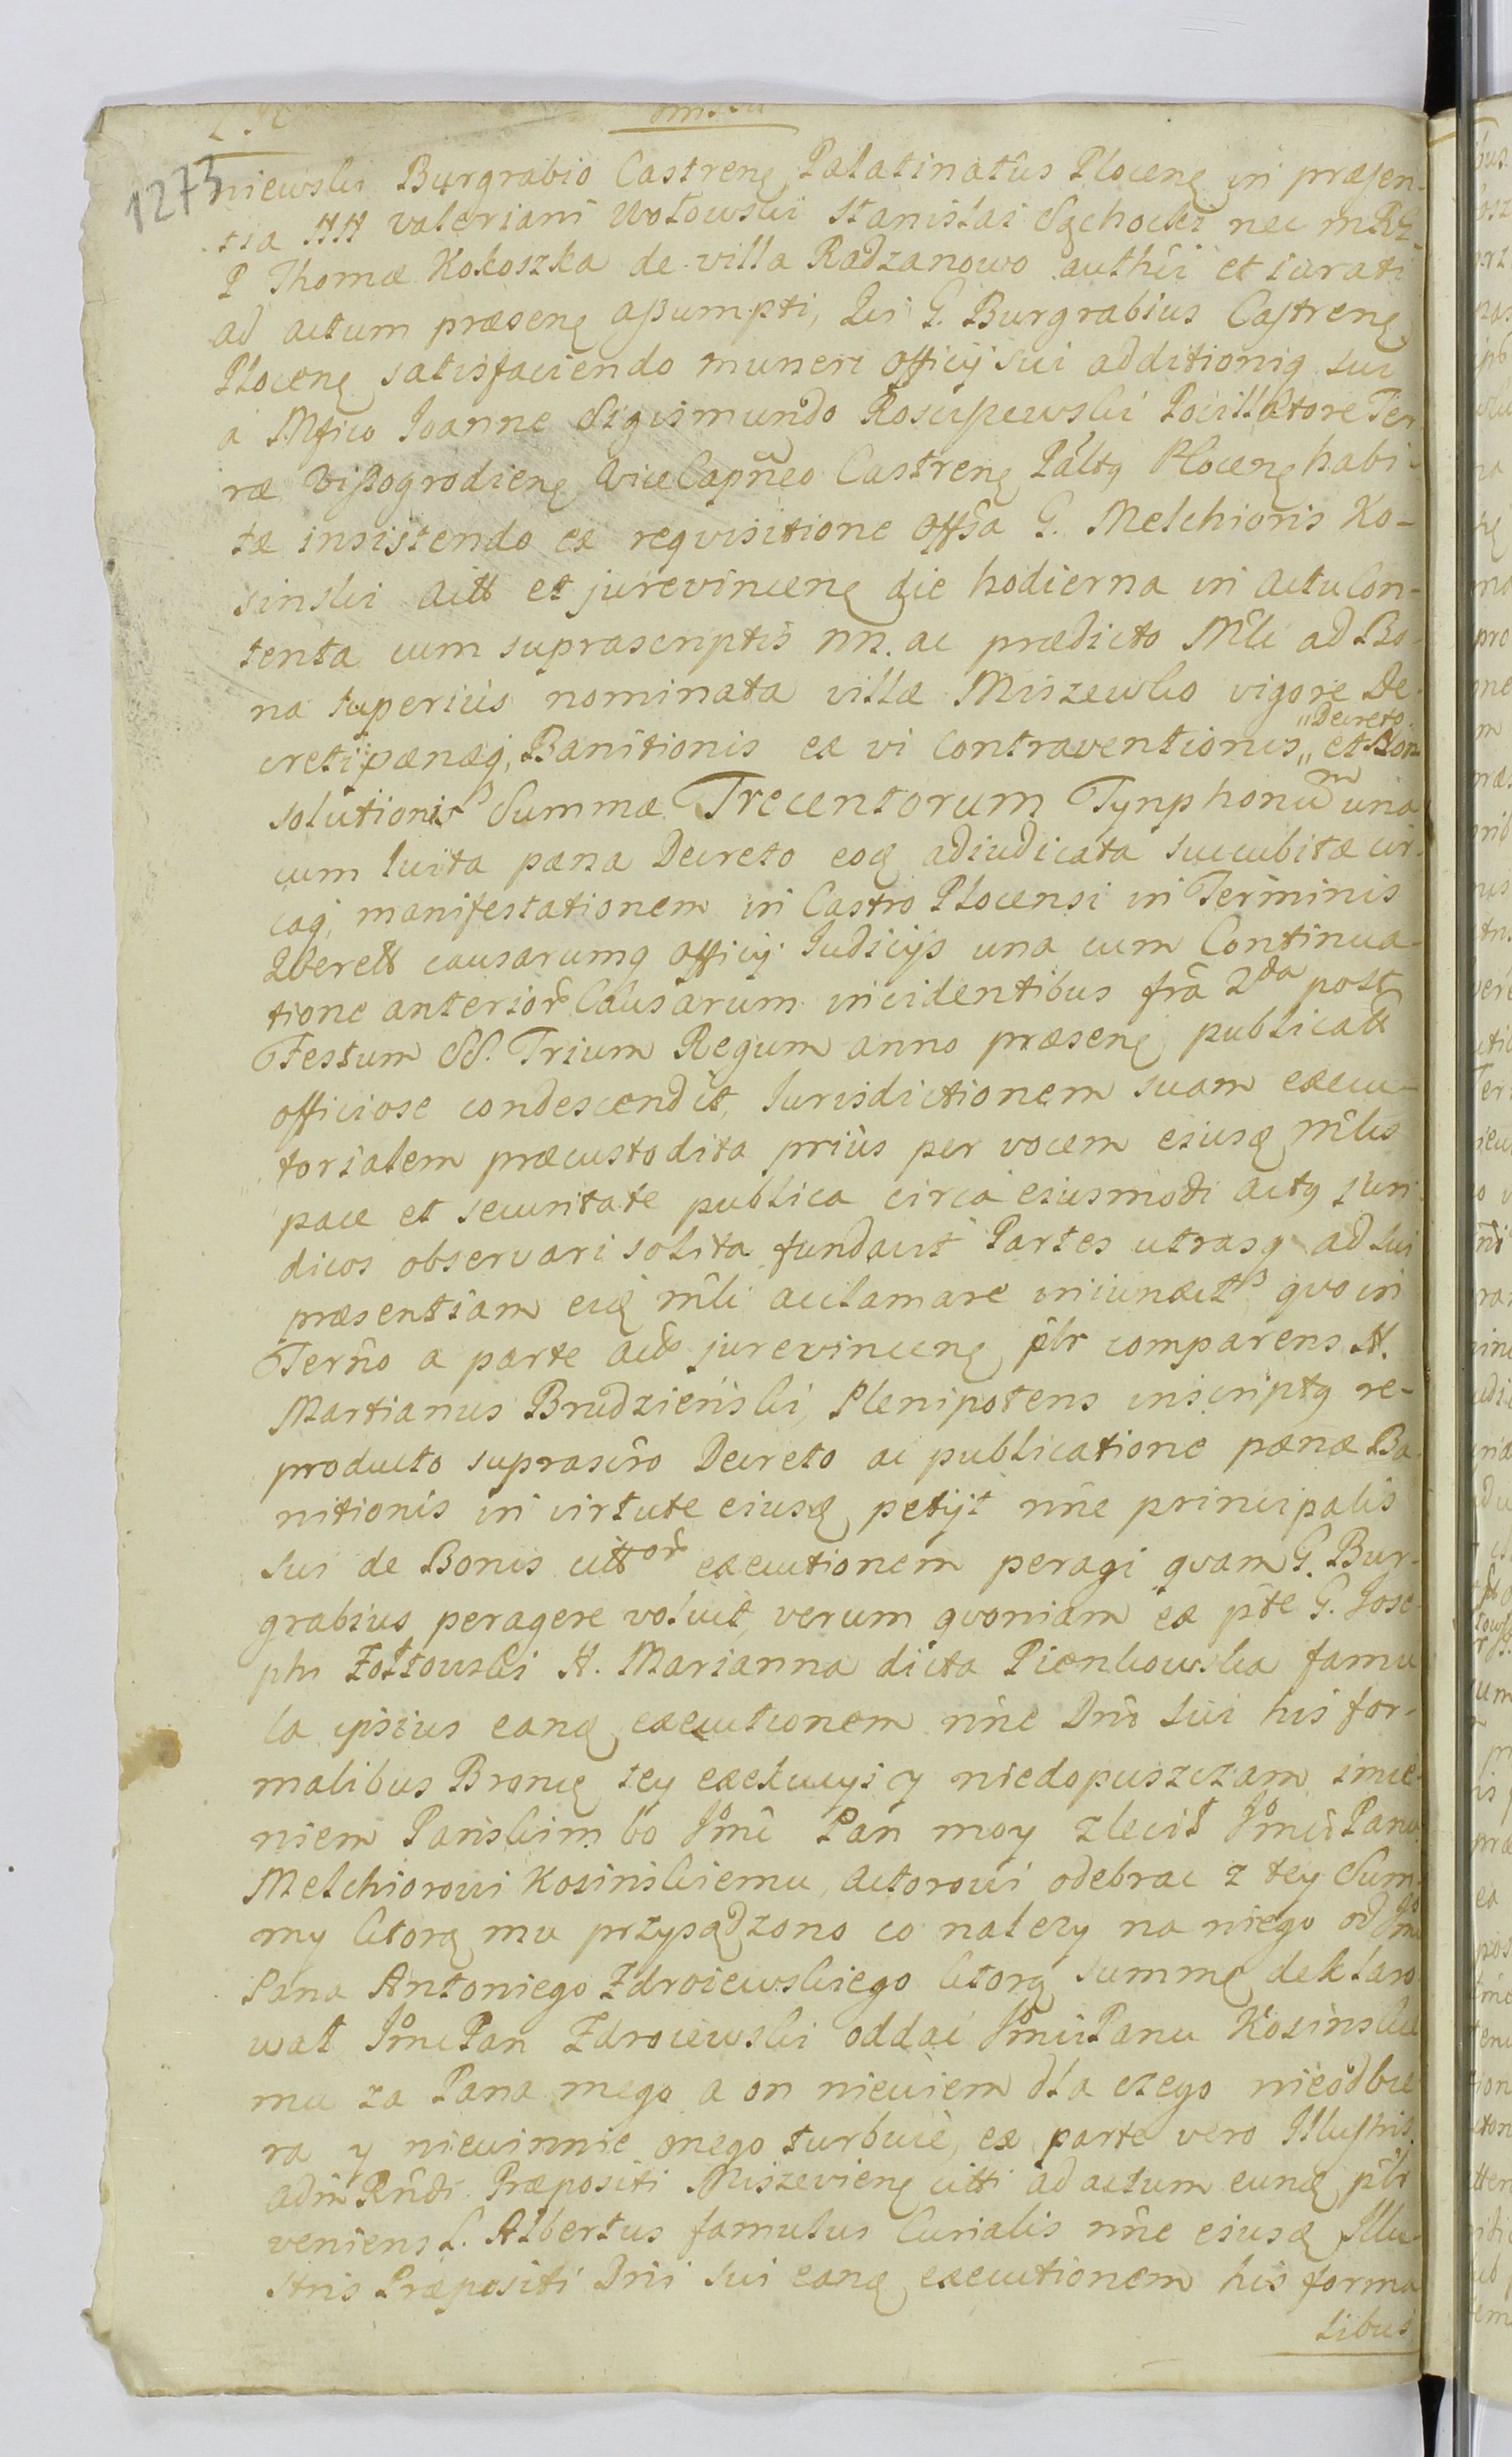 1273
niewski Burgrabio Castrenę Palatinatûs Plocenę in præsen-
tia NN Valeriani Wołowski Stanislai Sęchocki nec
P Thomæ Kokoszka de villa Radzanowo authci et iurati
ad actum præsenę aßumpti, Qui G. Burgrabius Castrenę
Plocenę satisfaciendo muneri officÿ sui additioniq sui
a Mfico Joanne Sigismundo Rosciszewski Pocillatore Ter
ræ Vißogrodienę ViceCapneo Castrenę Paltq Plocenę habi-
tæ insistendo ex reqvisitione Offsa G. Melchioris Ko-
sinski Actt et jurevincenę die hodierna in Actu Con-
tenta cum suprascriptis nn. ac prædicto Mli ad Bo-
na superiùs nominata villæ Miszewko vigore De-
creti pænæq, Banitionis ex vi contraventionis „ et Non
„Decreto
solutionis Summæ Trecentorum Tynphonum una
cum luita pæna Decreto eoq adiudicata succubitæ cir-
caq, manifestationem in Castro Plocensi in Terminis
Qverell causarumq officÿ Judicÿs una cum Continua-
tione anterior Causarum incidentibus fra 2da post
Festum SS. Trium Regum anno præsenę publicatt
officiose condescendit, Jurisdictionem suam execu-
torialem præcustodita priùs per vocem eiusq Mlis
pace et securitate publica circa eiusmodi actq juri
dicos observari solita fundavit Partes utrasq ad sui
præsentiam eiq mli acclamare iniunxit qvo in
Terno a parte act jurevincenę plr comparens N.
Martianus Brudzieński Plenipotens inscriptq re-
producto suprascro Decreto ac publicatione pænæ Ba-
nitionis in virtute eiusq petÿt nne principalis
sui de Bonis citt or executionem peragi qvam G. Bur-
grabius peragere voluit, verum qvoniam ex pte G. Jose
phi Zołtowski N. Marianna dicta Pienkowska famu
la ipsius eanq executionem nne Dni sui his for-
malibus Bronię tey exekucyi y niedopuszczam imie-
niem Pańskim bo Jmc Pan moy zlecił Jmci Panu
Melchiorowi Kosinskiemu, Actorowi odebrac z tey Sum-
my ktorą mu przysądzono co nalezy na niego od Jmci
Pana Antoniego Zdroiewskiego ktorą summę deklaro
wał JmcPan Zdroiewski oddać JmciPanu Kosinskie
mu za Pana mego a on niewiem dla czego nieodbie
ra y niewinnie onego turbuie, ex parte vero Illustris
adm Rndi Præpositi Miszevienę citti ad actum eunq plr
veniens L. Albertus famulus Curialis nne eiusq Illu
stris Præpositi Dni sui eanq executionem his forma
libus